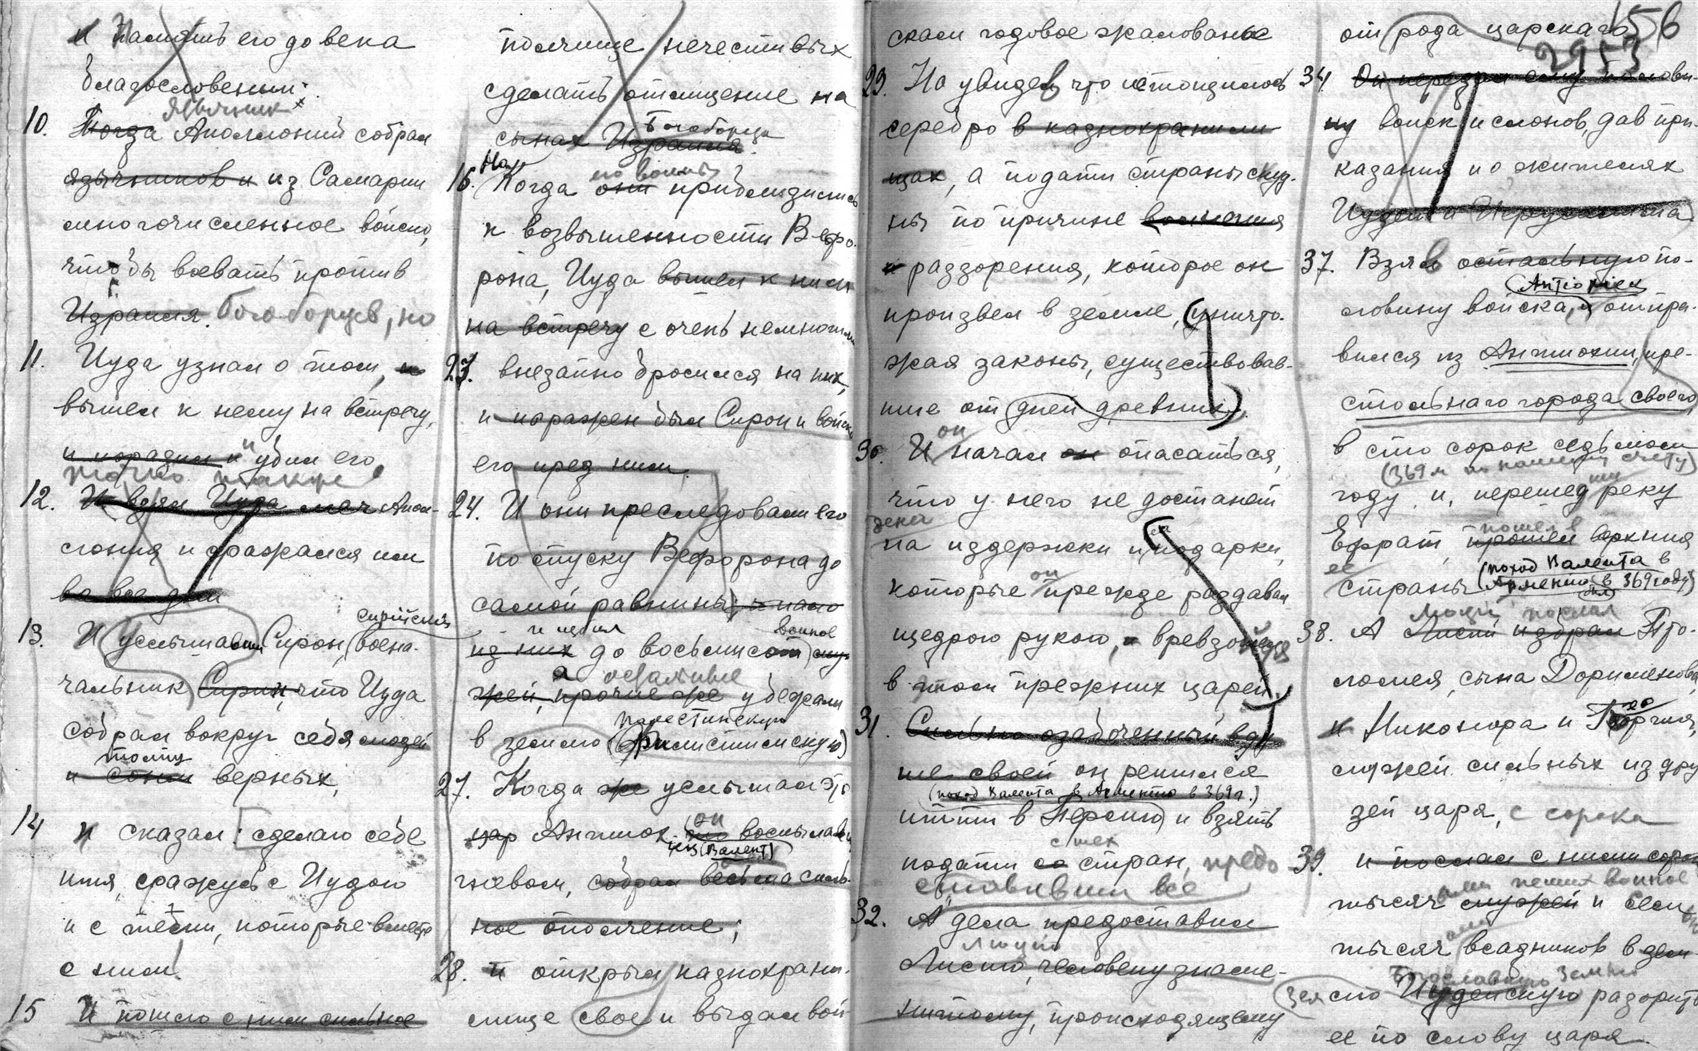 и память его до века
благословенна.
язычник
10. Тогда Аполлоний собрал
язычников и из Самарии
многочисленное войско,
чтобы воевать против
Израиля. богоборцев, но
11. Иуда узнал о том, и
вышел к нему на встречу,
и поразил и убил его
12. И взял Иуда меч Апол-
лония и сражался им
во все дни
сирийский
13. И услышавши Сирон, воена-
чальник Сирии, что Иуда
собрал вокруг себя людей
толпу
и сонм верных,
14 и сказал: сделаю себе
имя, сражусь с Иудою
и с теми, которые вместе
с ним.
15 И пошло с ним сильное
полчище нечестивых
сделать отмщение на
Богоборца
сынах Израиля.
Но его воины
16. Когда они приблизились
к возвышенности Вефо-
рона, Иуда вышел к ним
на встречу с очень немногими
23. внезапно бросился на них,
и поражен был Сирон и войско
его пред ним.
24. И они преследовали его
по спуску Вефорона до
самой равнины, и пало
воинов
из них до восьмисот му-
а остальные
жей, прочие же убежали
палестинскую
в землю (Филистимскую)
27. Когда же услышал это
он
цар Антиох, то воспылал
(Валент)
гневом, собрал весьма силь-
ное ополчение;
28. и открыл казнохрани-
лище свое и выдал вой
скам годовое жалованье
29. Но увидев что истощилось
серебро в казнохранили-
щах, а подати страны скуд-
ны по причине волнения
и раззорения, которое он
произвел в земле, (уничто-
жая законы, существовав-
шие от дней древних).
он
30. И начал он опасаться,
что у него не достанет
на издержки и подарки,
он
которые прежде раздавал
щедрою рукою, и превзошед
в том прежних царей.
31. Сильно озабоченный в ду-
ше своей он решился
(поход Валента в Армению в 369 г.)
итти в Персию и взять
с тех
подати со стран, предо
ставивши все
32. А дела предоставил
Лисию, человеку знаме-
нитому, происходящему
от рода царскаго
156
2953
34. Он передал ему полови-
ну войск и слонов, дав при-
казания и о жителях
Иудеи и Иерусалима
37. Взяв остальную по-
ловину войска, и отпра-
вился из Антиохии, пре-
стольнаго города своего,
в сто сорок седьмом
(369 м по нашему счету)
году и, перешед реку
пошел в
Ефрат, прошел верхния
ее
страны (поход Валента в
Армению в 369 году)
послал
38. А Лисий избрал Пто-
ломея, сына Дорименова,
и Никонора и Горгия,
мужей сильных из дру-
зей царя, с сорока
39. и послал с ними сорок
пеших воинов
тысяч мужей и семь
тысяч всадников в зем-
Богославскую землю
лю Иудейскую разорить
ее по слову царя.